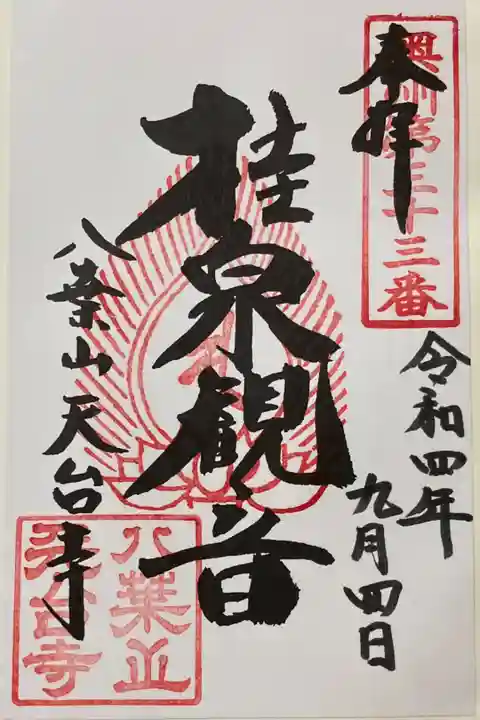 奥州第三十三番
奉拝
令和四年
九月四日
桂泉観音
八葉山天台寺
八葉山
天台寺